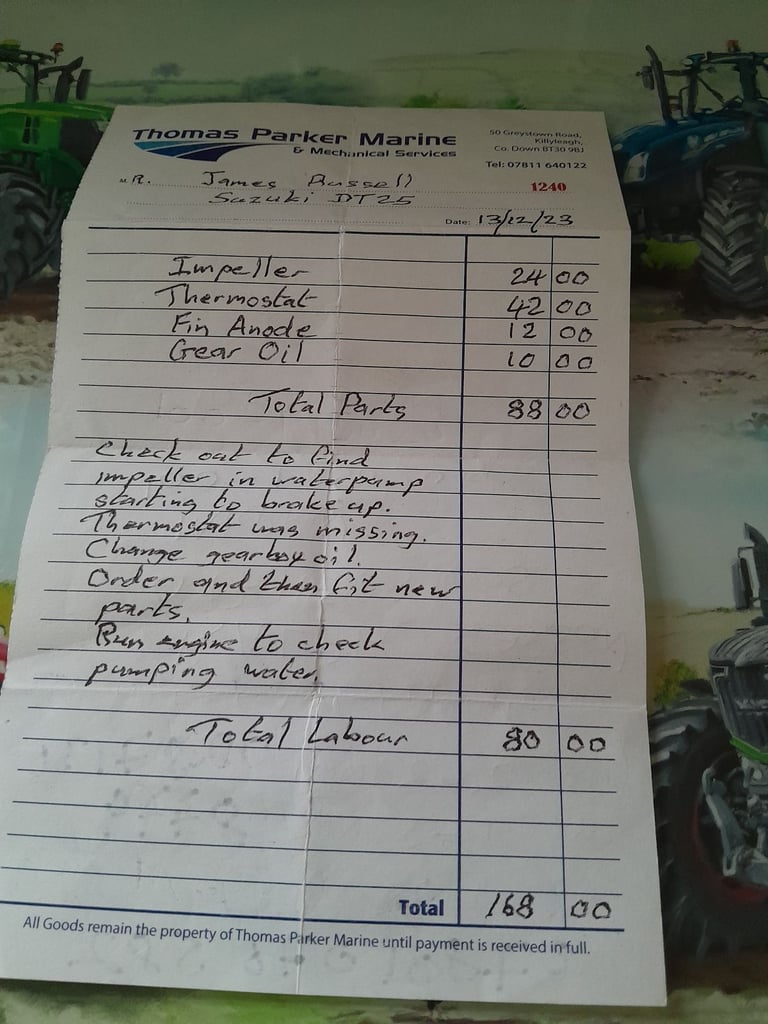 Thomas Parker Marine
& Mechanical Services
50 Greystown Road,
Killyleagh,
Co. Down BT30 9BJ
Tel: 07811 640122
M R. James Russell
1240
Suzuki DT25
Date: 13/12/23
Impeller 24 00
Thermostat 42 00
Fin Anode 12 00
Gear Oil 10 00
Total Parts 88 00
Check out to find
impeller in waterpump
starting to brake up.
Thermostat was missing.
Change gearbox oil.
Order and then fit new
parts.
Run engine to check
pumping water.
Total Labour 80 00
Total 168 00
All Goods remain the property of Thomas Parker Marine until payment is received in full.